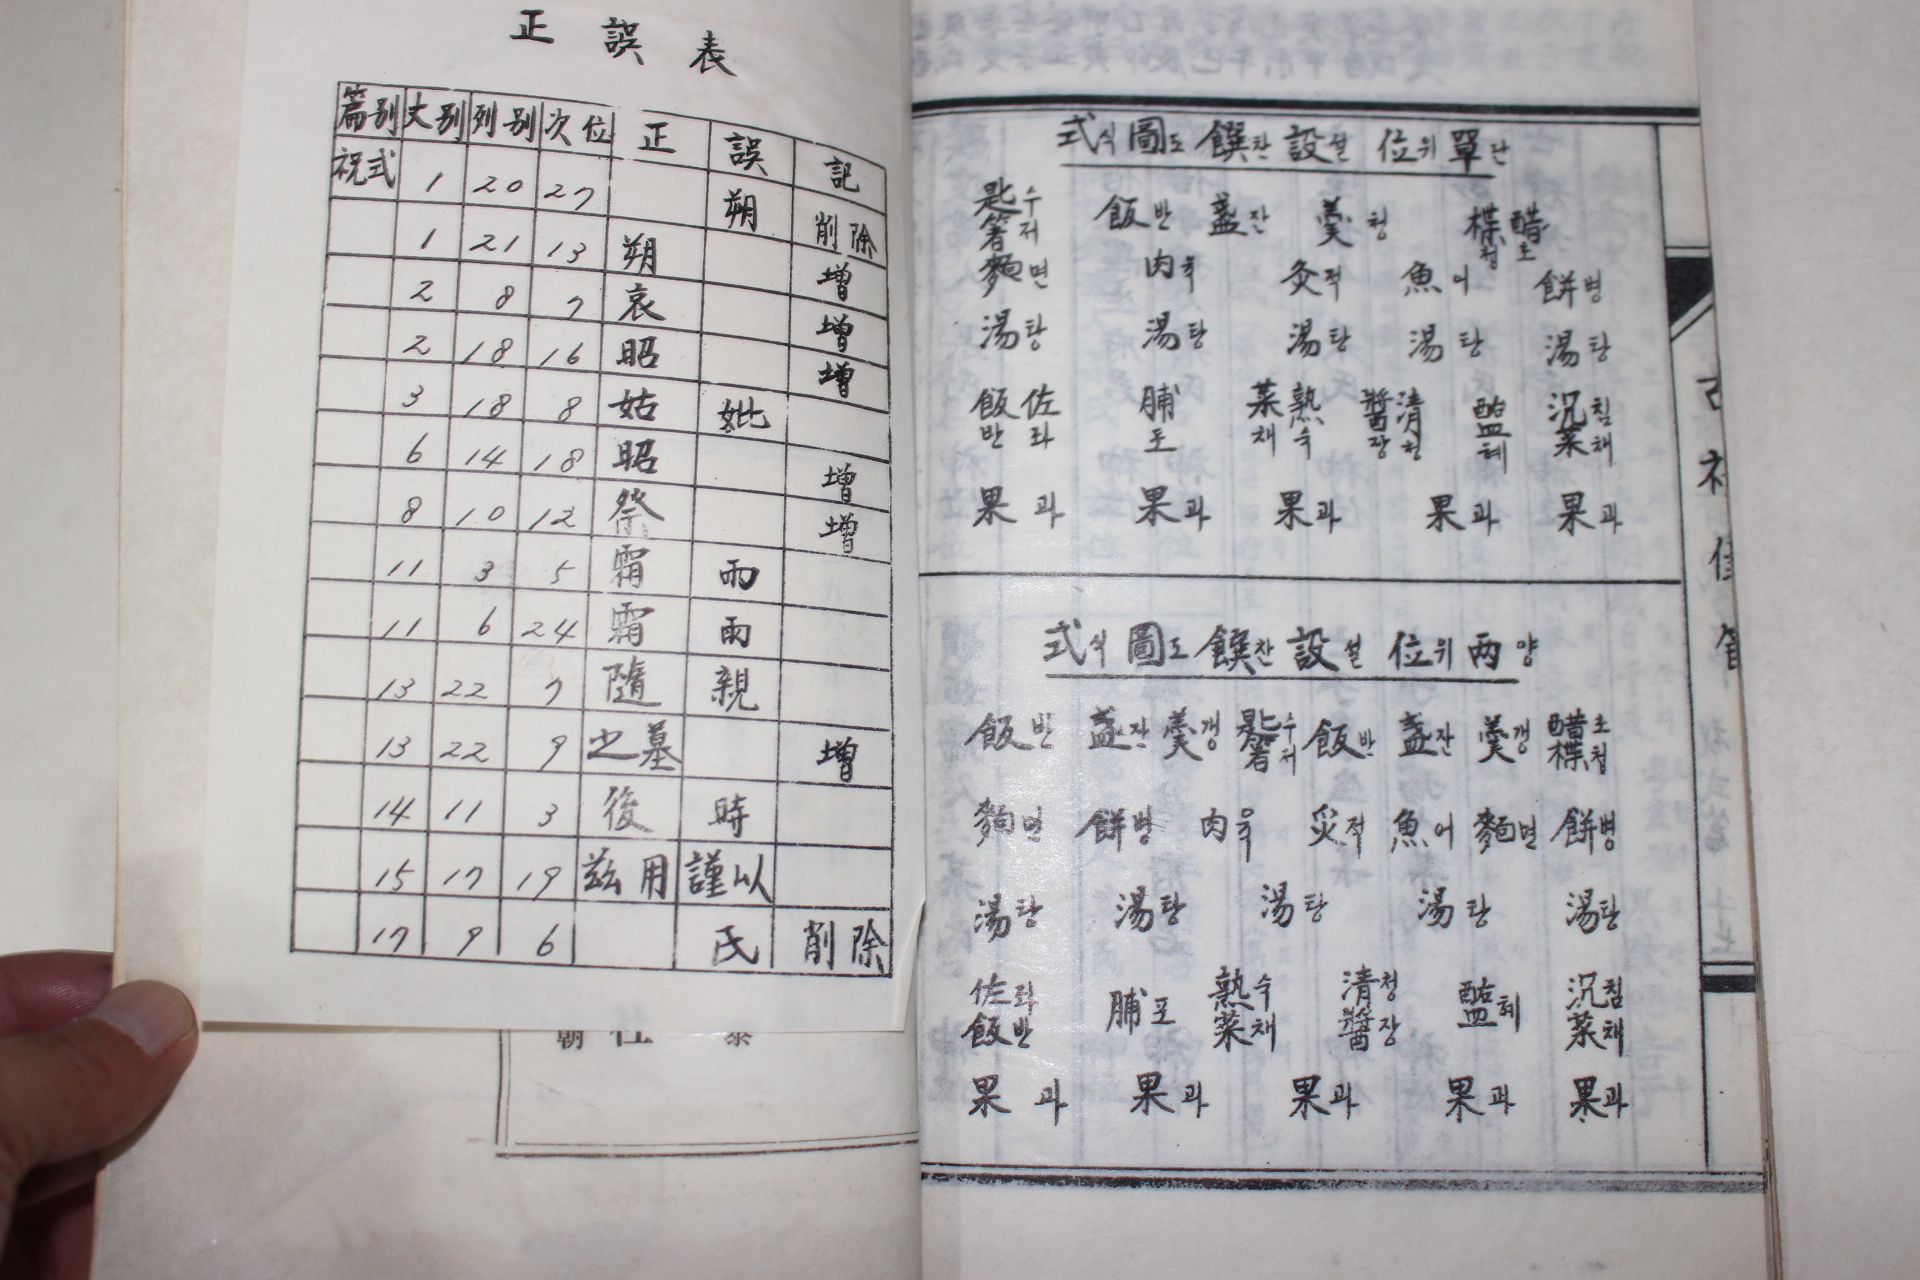 正 誤 表
篇別 丈別 列別 次位 正 誤 記
祝式 1 20 27 朔 削除
1 21 13 朔 增
2 8 7 哀 增
2 18 16 昭 增
3 18 8 姑 妣
6 14 18 昭 增
8 10 12 祭 增
11 3 5 霜 雨
11 6 24 霜 雨
13 22 7 隨 親
13 22 9 之墓 增
14 11 3 後 時
15 17 19 玆用 謹以
17 9 6 氏 削除
式식 圖도 饌찬 設설 位위 單단
匙수 箸저 飯반 盞잔 羹청 楪청 醋초
麵면 肉육 炙적 魚어 餠병
湯탕 湯탕 湯탕 湯탕 湯탕
飯반 佐좌 脯포 菜채 熟숙 醬장 淸청 醢혜 沉침 菜채
果과 果과 果과 果과 果과
式식 圖도 饌찬 設설 位위 兩양
飯반 盞잔 羹갱 匙수 箸저 飯반 盞잔 羹갱 醋초 楪첩
麵면 餠병 肉육 炙적 魚어 麵면 餠병
湯탕 湯탕 湯탕 湯탕 湯탕
佐좌 飯반 脯포 熟숙 菜채 淸청 醬장 醢혜 沉침 菜채
果과 果과 果과 果과 果과